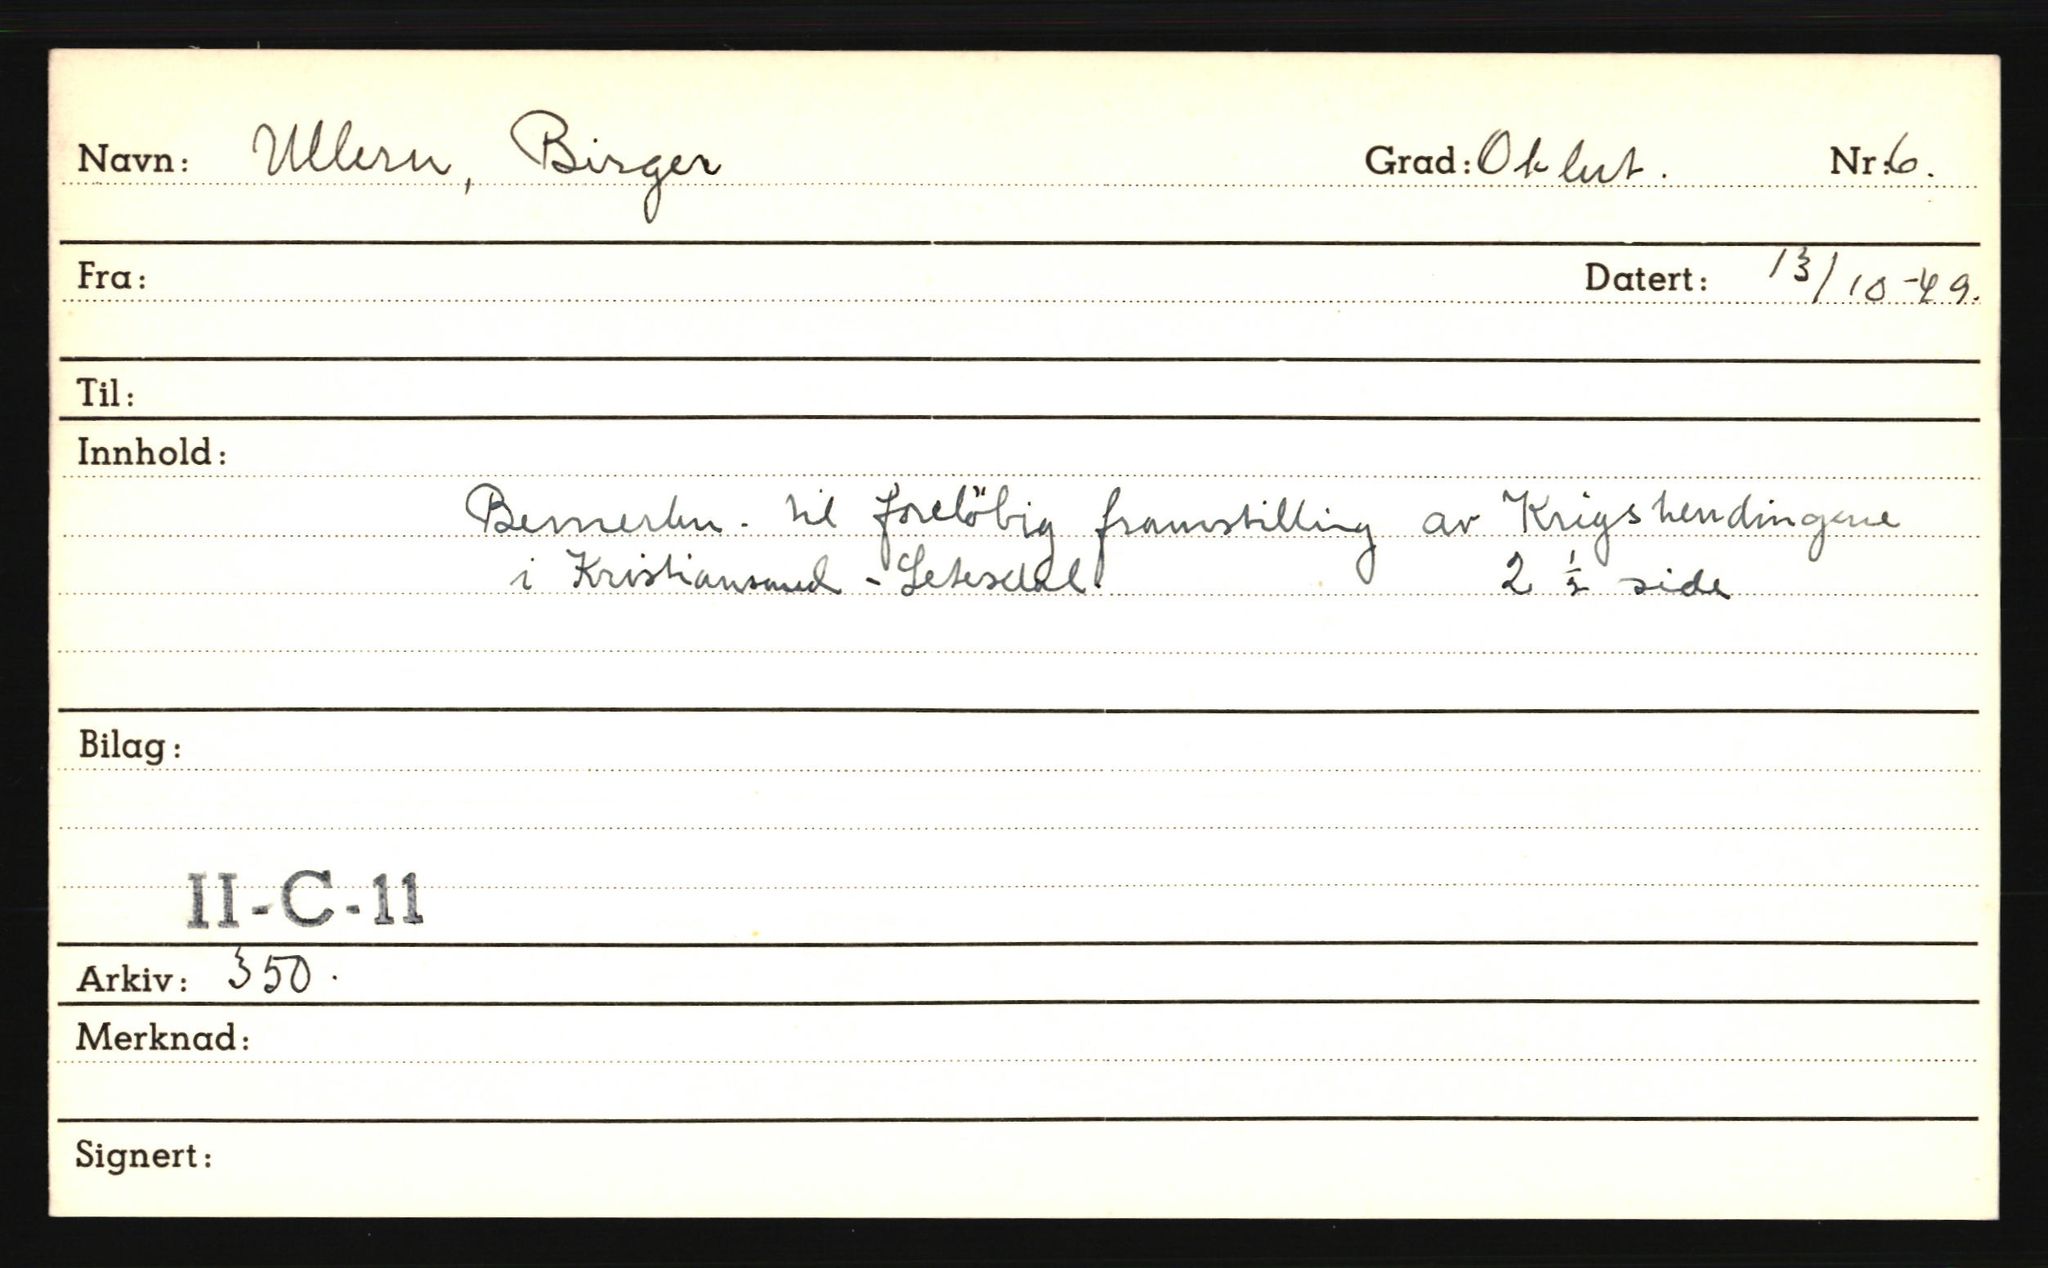 Navn: Ullern, Birger Grad: Obltnt. Nr: 6.
Fra: Datert: 13/10-49.
Til:
Innhold:
Bemerkn. til foreløbig framstilling av Krigshendingene
i Kristiansand - Setesdal. 2 ½ side
Bilag:
II-C-11
Arkiv: 350.
Merknad:
Signert: